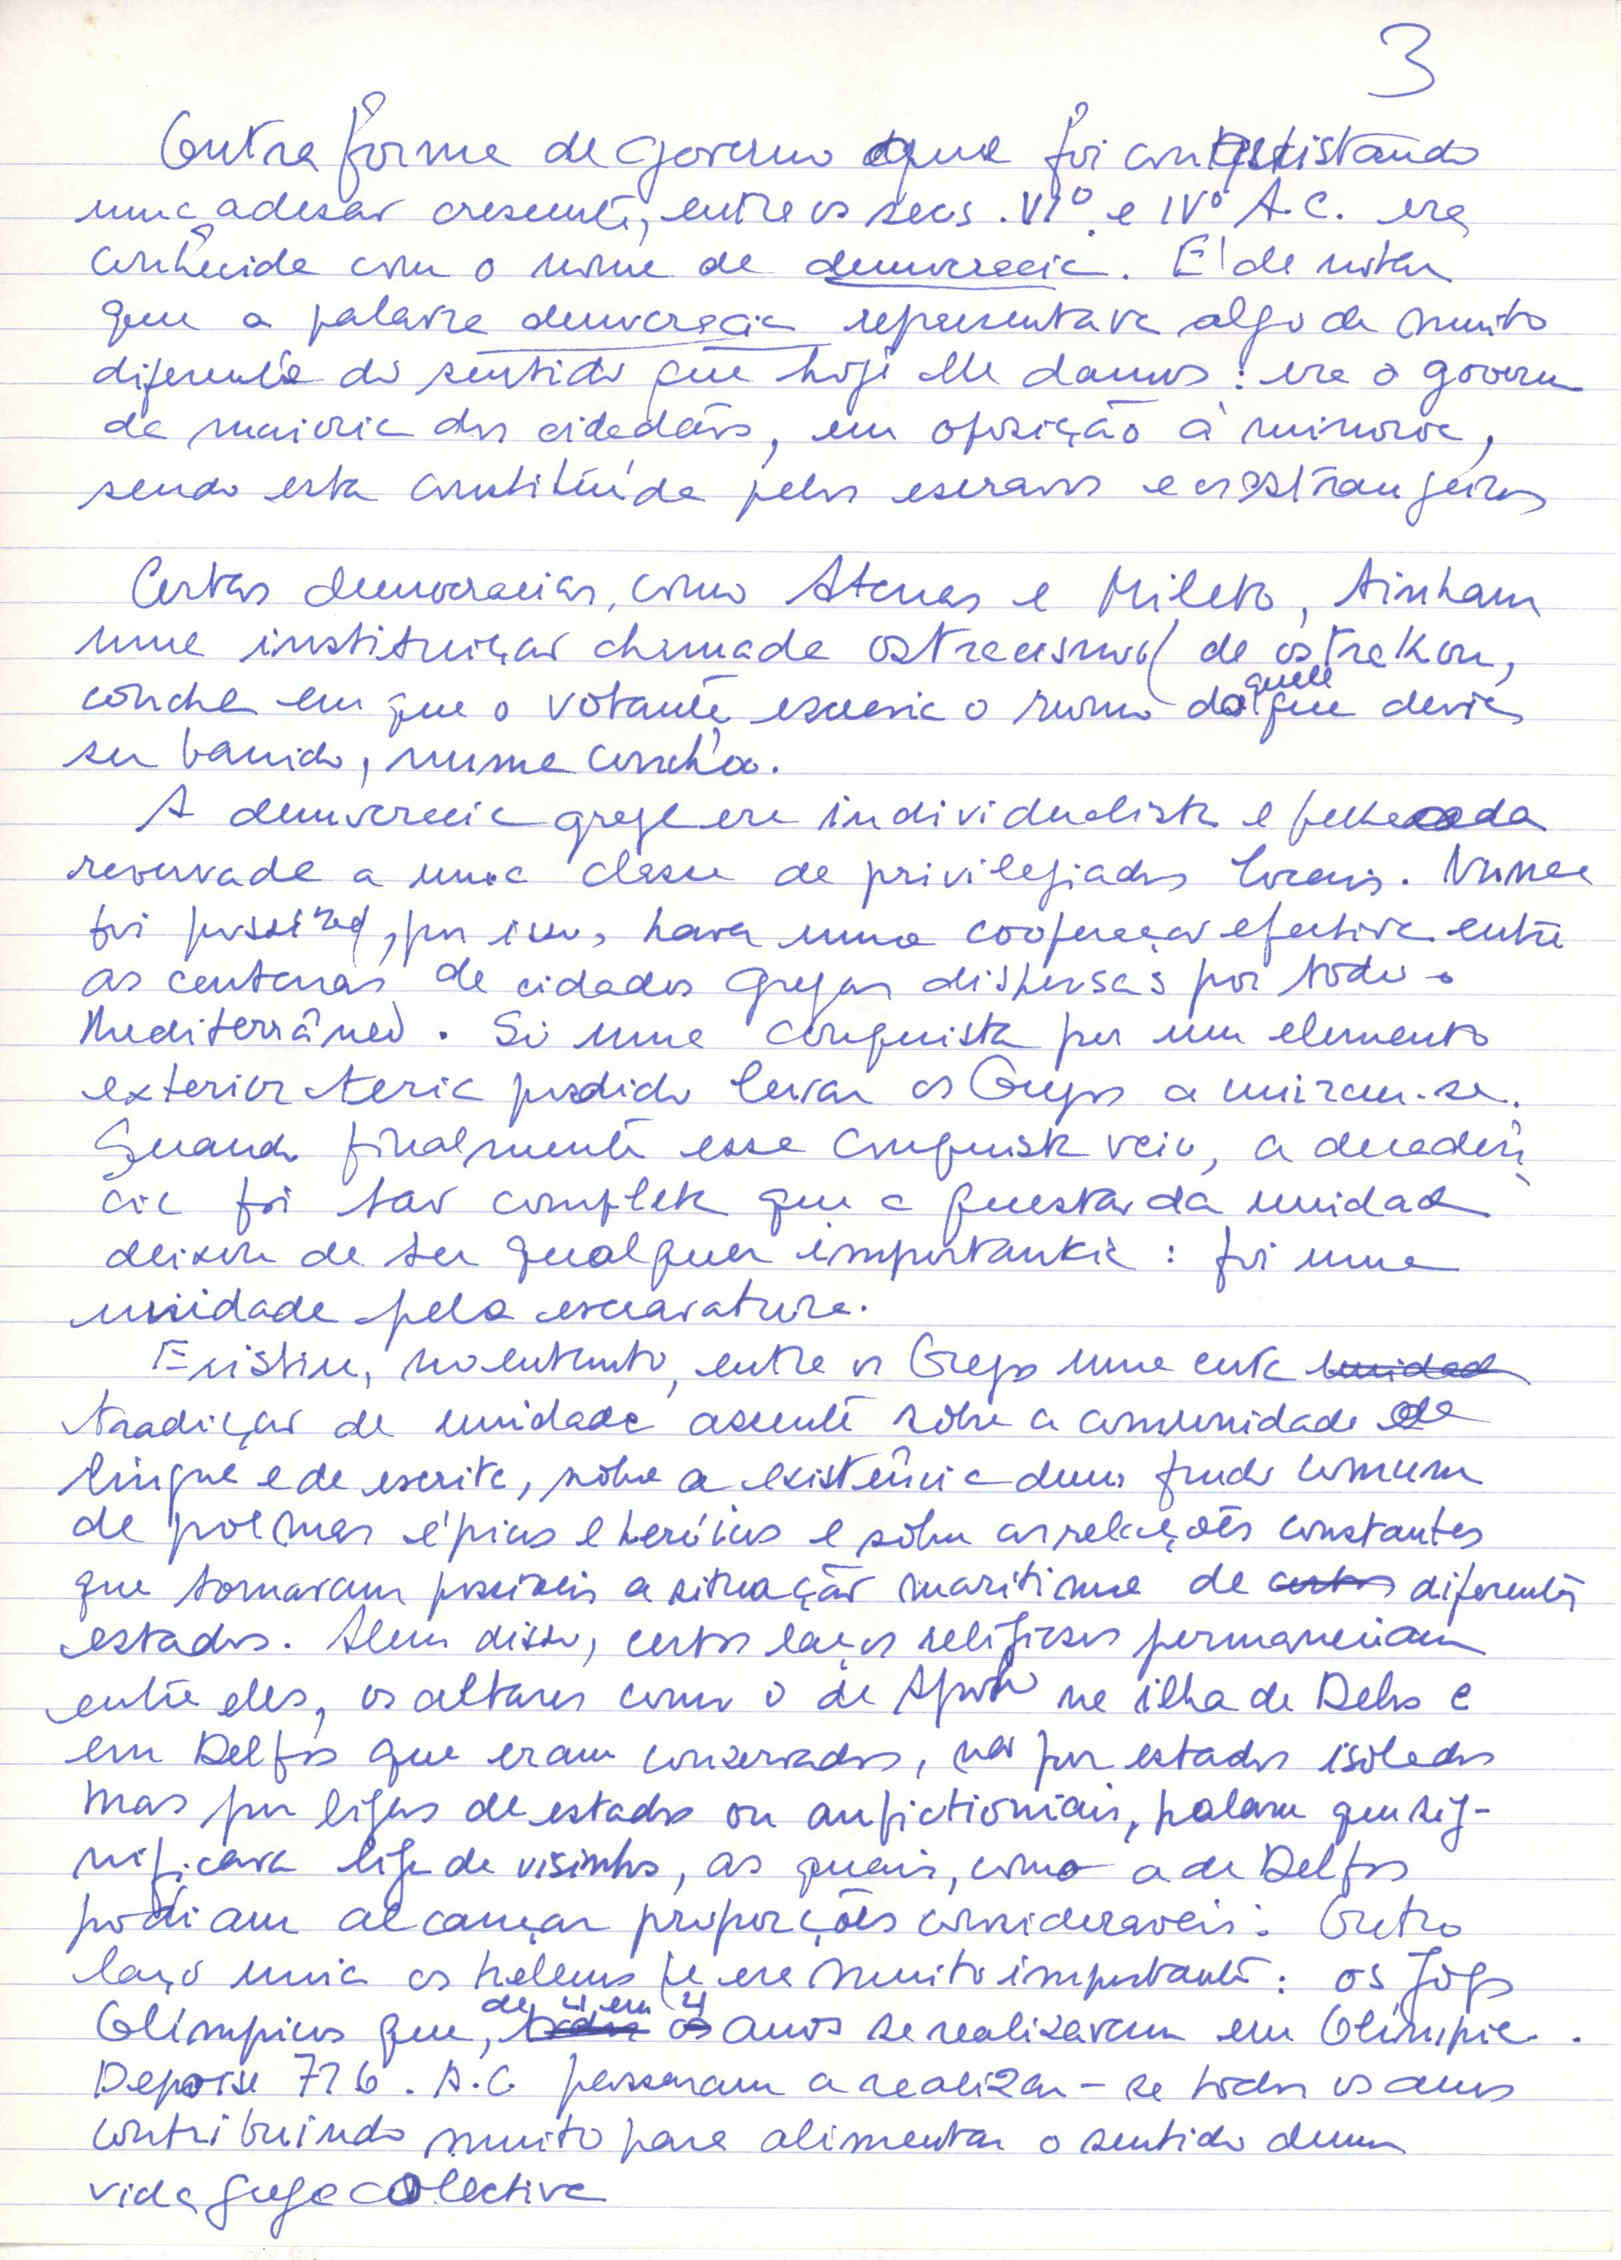 3
Outra forma de governo que foi conquistando
uma adesão crescente, entre os secs. VIº e IVº A.C. era
conhecida com o nome de democracia. É de notar
que a palavra democracia representava algo de muito
diferente do sentido que hoje lhe damos: era o governo
da maioria dos cidadãos, em oposição à minoria,
sendo esta constituída pelos escravos e os estrangeiros
Certas democracias, como Atenas e Mileto, tinham
uma instituição chamada ostracismo (de ostrakon,
concha em que o votante escrevia o nome daquele que devia
ser banido, numa concha.
A democracia grega era individualista e fechada
reservada a uma classe de privilegiados locais. Nunca
foi possível, por isso, haver uma cooperação efectiva entre
as centenas de cidades gregas dispersas por todo o
Mediterrâneo. Só uma conquista por um elemento
exterior teria podido levar os Gregos a unirem-se.
Quando finalmente essa conquista veio, a decadên-
cia foi tão completa que a questão da unidade
deixou de ter qualquer importância: foi uma
unidade pela escravatura.
Existiu, no entanto, entre os Gregos uma certa unidade
tradição de unidade assente sôbre a comunidade de
língua e de escrita, sôbre a existência dum fundo comum
de poemas épicos e heróicos e sôbre as relações constantes
que tornaram possíveis a situação maritima de certos diferentes
estados. Alem disso, certos laços religiosos permaneciam
entre eles, os altares como o de Apolo na ilha de Delos e
em Delfos que eram conservados, não por estados isolados
mas por ligas de estados ou anfictioniais, palavra que sig-
nificava liga de visinhos, as quais, como a de Delfos
podiam alcançar proporções consideraveis. Outro
laço unia os helenos e era muito importante: os Jogos
Olímpicos que, de 4 em 4 anos se realizavam em Olímpia.
Depois 776. A.C passaram a realizar-se todos os anos
contribuindo muito para alimentar o sentido duma
vida grega colectiva